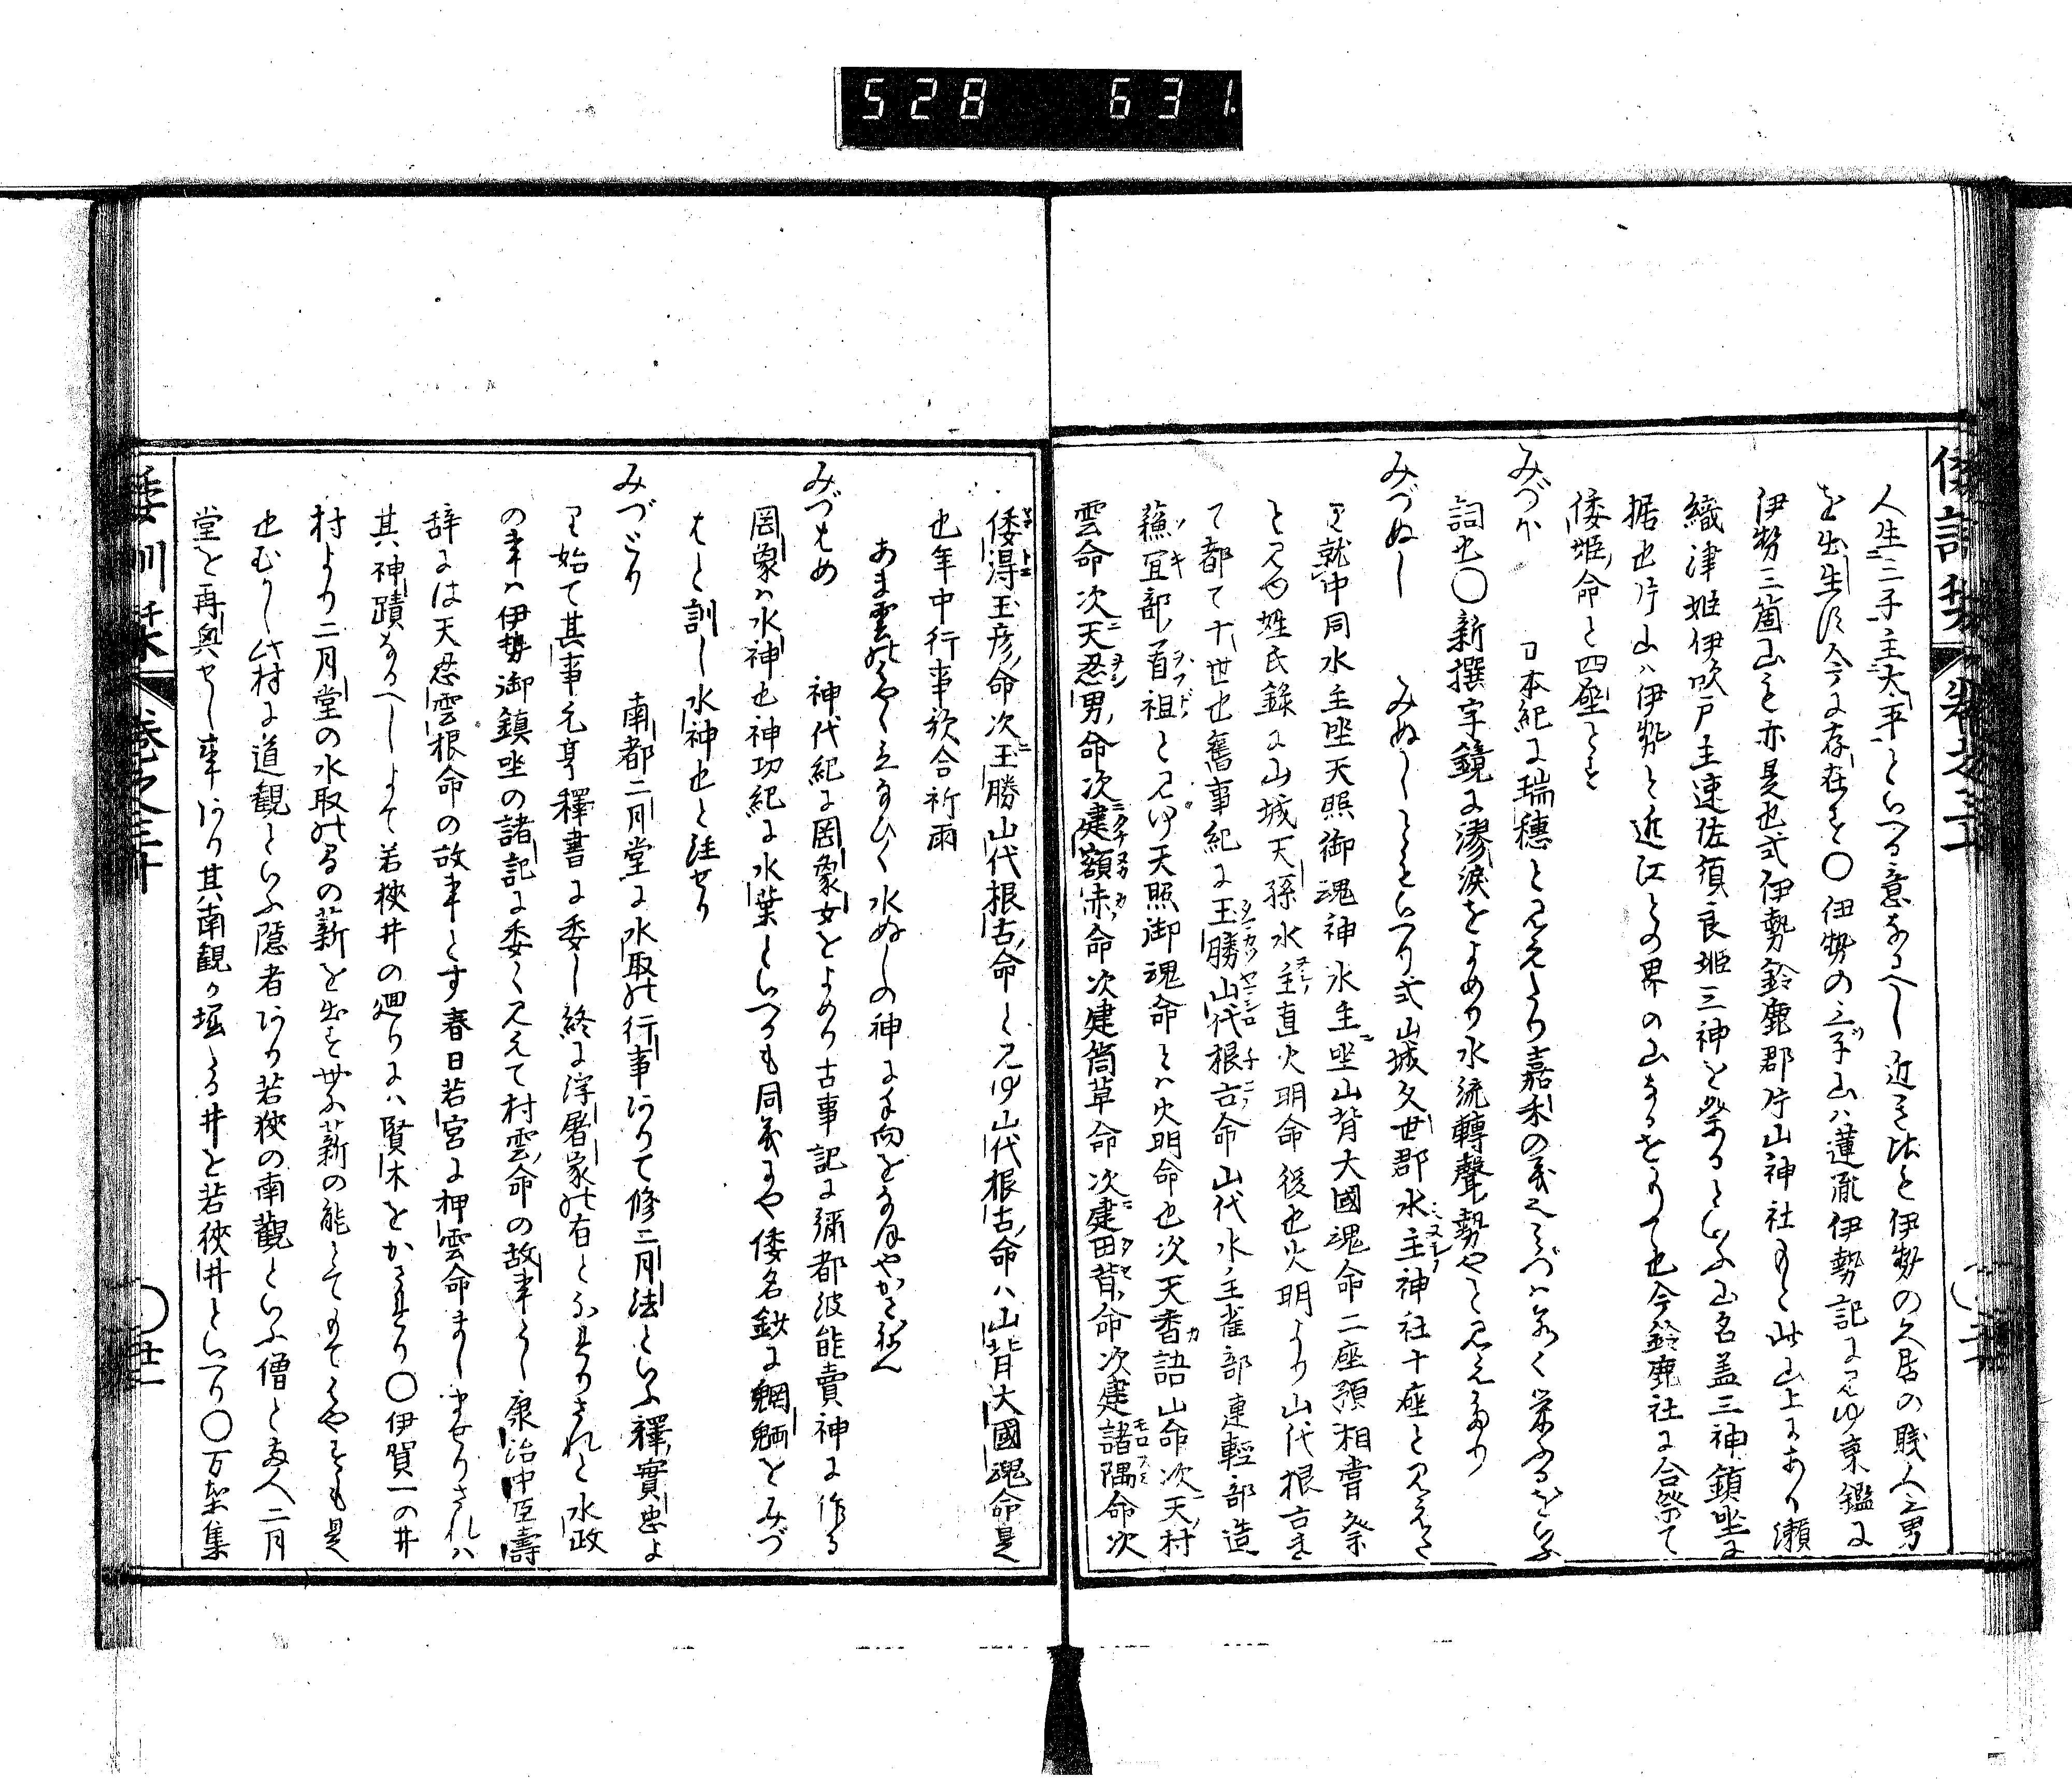 528 631
倭訓栞 卷之三十
人生二子主太平といへる意なるへし近き比も伊勢の久居の賤人三男
を出生にて今に存在せり○伊勢の三子山ハ蓮胤伊勢記に見ゆ東鑑に
伊勢三箇山も亦是也式伊勢鈴鹿郡片山神社もと此山上にあり瀬
織津姫伊吹戸主速佐須良姫三神を祭るといふ山名盖三神鎮坐に
据也片山ハ伊勢と近江との界の山なるをもて也今鈴鹿社に合祭て
倭姫命と四座とす
みづほ 日本紀に瑞穂と見えたり嘉禾の義也みづハわかく栄ふるをいふ
詞也○新撰字鏡に滲涙をよめり水流轉聲勢やと見えたり
みづぬし みぬしともいへり式山城久世郡水主神社十座と見えた
り就中同水主坐天照御魂神水主坐山背大國魂命二座預相嘗祭
と見ゆ姓氏録に山城天孫水主直火明命後也火明より山代根古ま
て都て十世也舊事紀に玉勝山代根古命山代水主雀部連輕部造
蘓宜部首祖と見ゆ天照御魂命とハ火明命也次天香語山命次天村
雲命次天忍男命次建額赤命次建筒草命次建田背命次建諸隅命次
倭得玉彦命次玉勝山代根古命と見ゆ山代根古命ハ山背大國魂命是
也年中行事歌合祈雨
あま雲のはやく立なひく水ぬしの神に手向を
みづはめ 神代紀に罔象女をよめり古事記に彌都波能賣神に作る
罔象ハ水神也神功紀に水葉といへるも同義にや倭名鈔に魍魎をみづ
はと訓し水神也と注せり
みづとり 南都二月堂に水取の行事ありて修二月法といふ釋實忠よ
り始て其事元亨釋書に委し終に浮屠家の有となれりされと水政
の事ハ伊勢御鎮坐の諸記に委く見えて村雲命の故事なり康治中臣壽
辞には天忍雲根命の故事とす春日若宮に押雲命まします也されハ
其神蹟なるへしよて若狭井の廻りにハ賢木をかさせり○伊賀一の井
村より二月堂の水取のるの薪を出せり世に薪の能とてもてはやせるも是
也むかし此村に道観といふ隠者あり若狭の南観といふ僧と両人二月
堂を再興せし事あり其南観か堀たる井を若狭井といへり○万葉集
倭訓栞 卷之三十